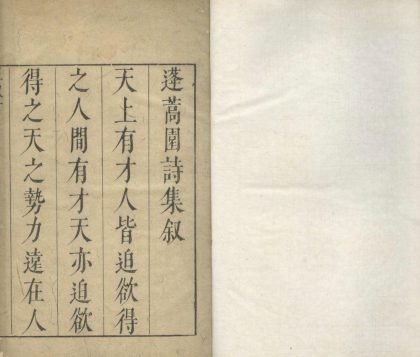 蓬蒿園詩集叙
天上有才人皆迫欲得
之人間有才天亦迫欲
得之天之勢力遠在人